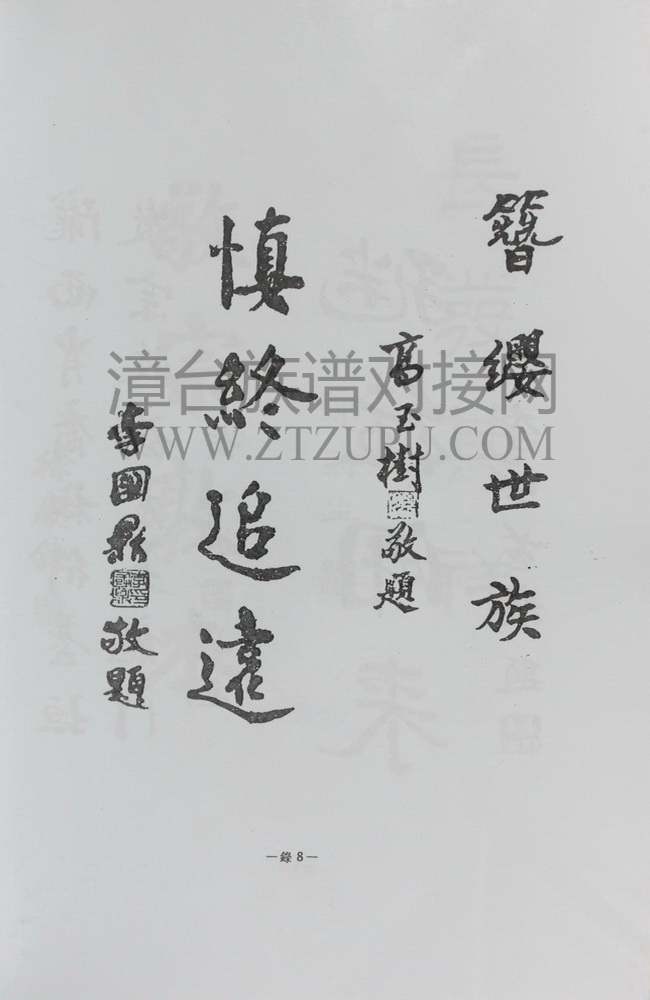 簪纓世族
高玉樹敬題
慎終追遠
李國鼎敬題
漳台族谱对接网
WWW.ZTZUPU.COM
—錄8—